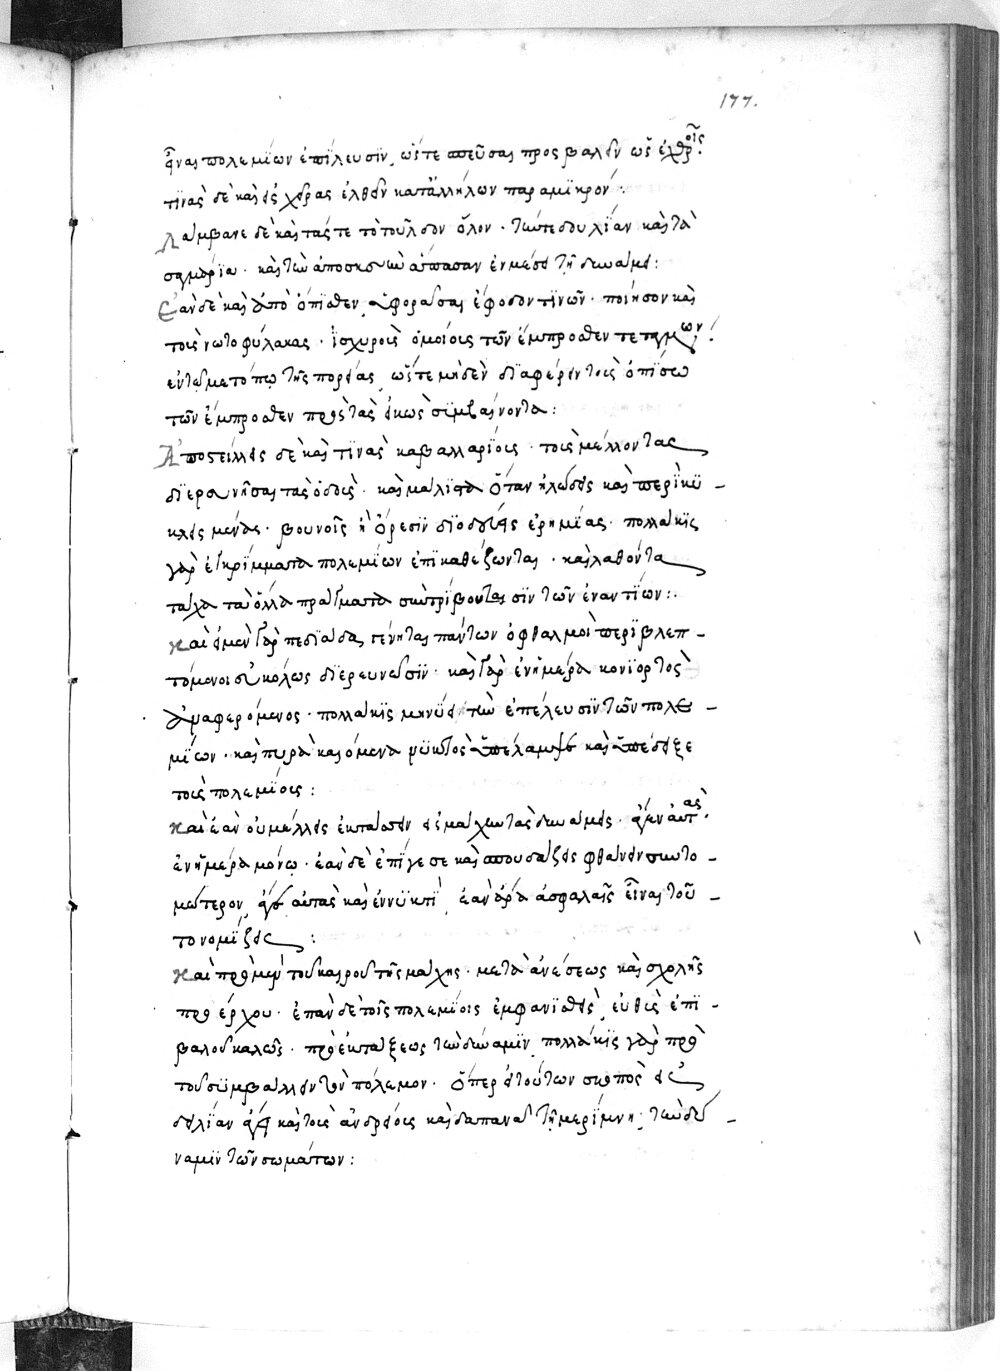 177.
εἶναι πολεμίων ἐπέλευσιν, ὥστε σπεῦσαι προσβαλεῖν ὡς ἐχθροῖς.
τινὰς δὲ καὶ εἰς χεῖρας ἐλθεῖν κατ' ἀλλήλων παρὰ μικρόν:
Λάμβανε δὲ καὶ τάττε τὸ τοῦλδον ὅλον. τήν τε δουλείαν καὶ τὰ
σαγμάρια. καὶ τὴν ἀποσκευὴν ἅπασαν ἐν μέσῳ τῆς δυνάμεως:
Ἐὰν δὲ καὶ ἀπὸ ὄπισθεν ἀφορᾶσαι ἔφοδόν τινων. ποίησον καὶ
τοὺς νωτοφύλακας. ἰσχυροὺς ὁμοίους τῶν ἔμπροσθεν τεταγμένων:
ἐν τῷ μετώπῳ τῆς πορείας, ὥστε μηδὲν διαφέρειν τοὺς ὀπίσω
τῶν ἔμπροσθεν πρὸς τὰς εἰκὸς συμβαίνοντα:
Ἀποστείλεις δὲ καὶ τινὰς καβαλλαρίους. τοὺς μέλλοντας
διερευνῆσαι τὰς ὁδούς. καὶ μάλιστα ὅταν πλησίς καὶ περικυ-
κλεισμένας. βουνοῖς ἢ ὄρεσιν διοδεύεις ἐρημίας. πολλάκις
γὰρ ἐγκρύμματα πολεμίων ἐπικαθέζονται. καὶ λαθόντα
τάχα τὰ ὅλα πράγματα συντρίβονται σὺν τῶν ἐναντίων:
Καὶ εἰ μὲν γὰρ πεδιάδα, γένηται πάντων ὀφθαλμοὶ περιβλεπ-
τόμενοι εὐκόλως διερευνῶσιν. καὶ γὰρ ἐν ἡμέρα κονιορτὸς
ἀναφερόμενος. πολλάκις μηνύει τὴν ἐπέλευσιν τῶν πολε-
μίων. καὶ πυρὰ καιόμενα νυκτὸς ἀπέλαμψε καὶ ὑπέδειξε
τοὺς πολεμίους:
Καὶ ἐὰν οὐ μέλλεις ἐκτάσσειν εἰς μάχην τὰς δυνάμεις. ἄγειν αὐτὰς.
ἐν ἡμέρα μόνῳ. ἐὰν δὲ ἐπείγεσαι καὶ σπουδάζεις φθάνειν συντο-
μώτερον, ἄγε αὐτὰς καὶ ἐν νυκτὶ, ἐὰν ἄρα ἀσφαλὲς εἶναι τοῦ-
το νομίζεις:
Καὶ πρὸ μὲν τοῦ καιροῦ τῆς μάχης. μετὰ ἀνέσεως καὶ σχολῆς
προέρχου. ἐπὰν δὲ τοῖς πολεμίοις ἐμφανισθεὶς, εὐθὺς ἐπι-
βαλοῦ καλῶς. πρὸ ἐκτάξεως τὴν δύναμιν, πολλάκις γὰρ πρὸ
τοῦ συμβάλλειν τὸν πόλεμον. ὅπερ ὁ τούτων σκοπὸς εἰς
δειλίαν ἄγει καὶ τοὺς ἀνδρείους καὶ δαπανᾷ τῇ μερίμνῃ, τὴν δύ-
ναμιν τῶν σωμάτων: